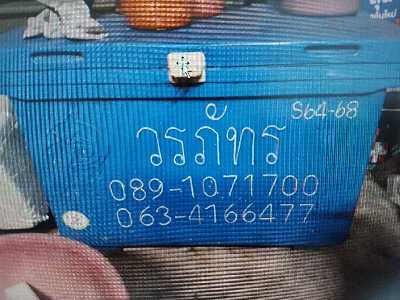 S64-68
วรภัทร
089-1071700
063-4166477